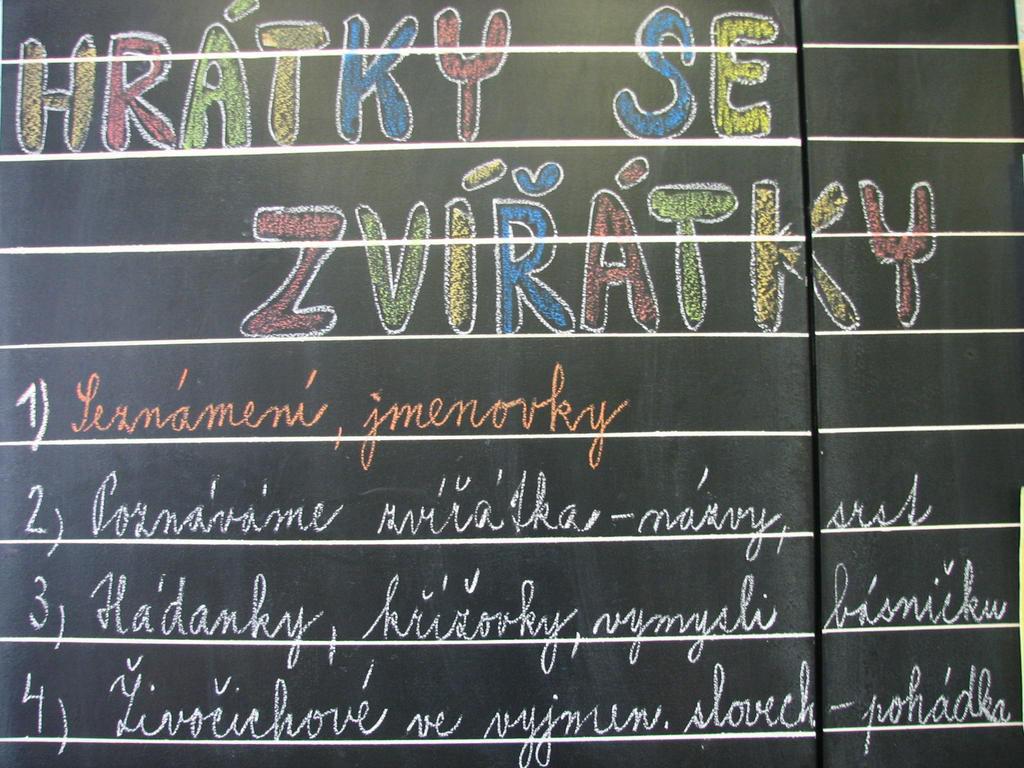 HRÁTKY SE
ZVÍŘÁTKY
1) Seznámení, jmenovky
2) Poznáváme zvířátka - názvy, srst
3) Hádanky, křížovky, vymysli básničku
4) Živočichové ve vyjmen. slovech - pohádka